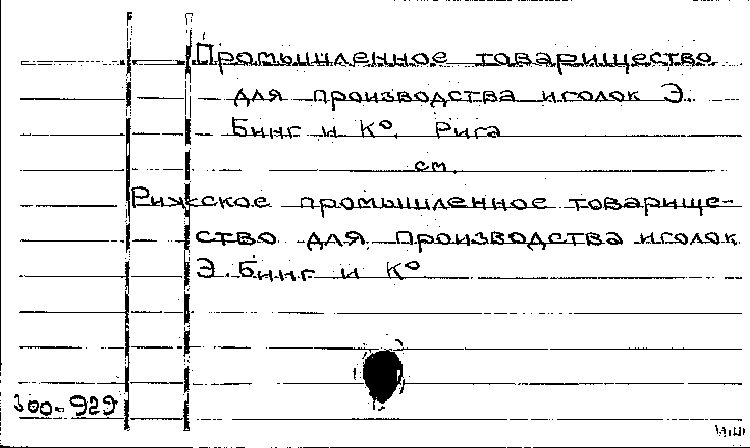 Промышленное товарищество
для производства иголок Э.
Бинг и К⁰, Рига
см.
Рижское промышленное товарище-
ство для производства иголок
Э. Бинг и К⁰
300-929